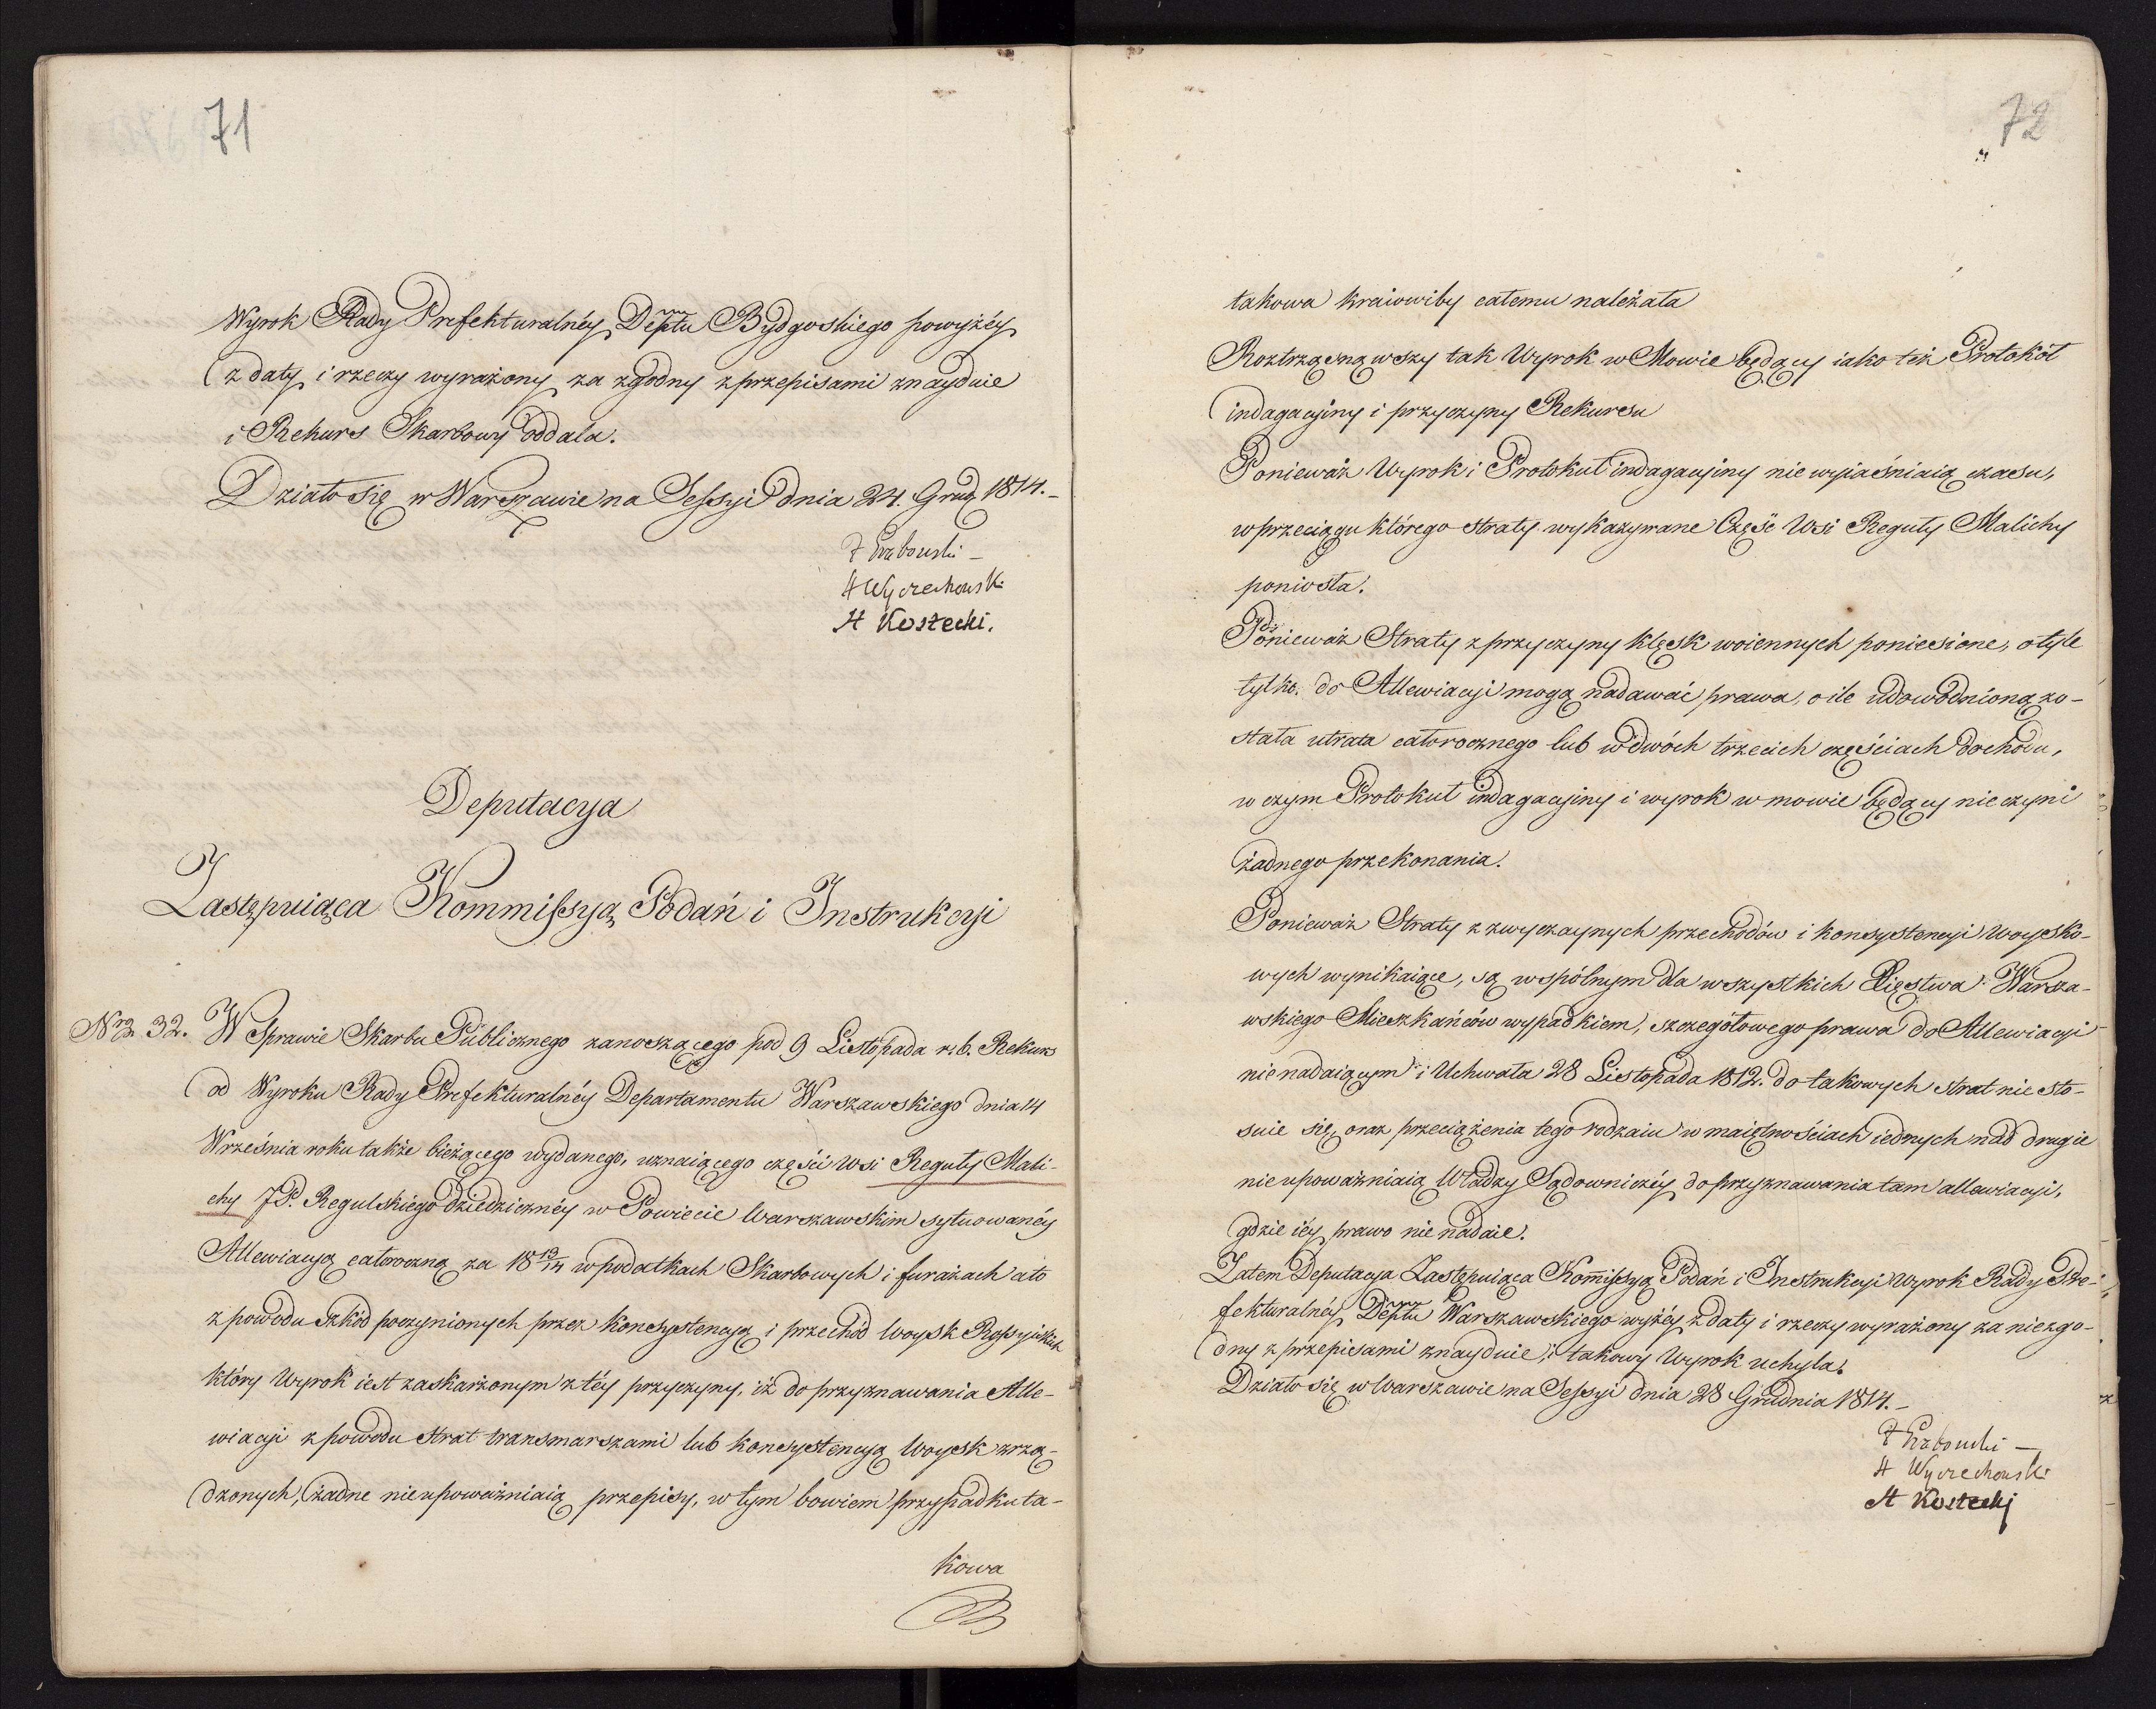 71
Wyrok Rady Prefekturalnéy Deptu Bydgoskiego powyżéy
z daty i rzeczy wyrażony za zgodny z przepisami znayduie
i Rekurs Skarbowy oddala.
Działo się w Warszawie na Sessyi dnia 24. Grud 1814.-
A Wyczechowski
A Kostecki.
Deputacya
Zastępuiąca Kommissyą Podań i Instrukcyi
Nro 32. W Sprawie Skarbu Publicznego zanoszącego pod 9 Listopada r. b. Rekurs
od Wyroku Rady Prefekturalnéy Departamentu Warszawskiego dnia 14
Września roku także bieżącego wydanego, uznaiącego części wsi Reguły Mali-
chy JP. Regulskiego dziedzicznéy w Powiecie Warszawskim sytuowanéy
Allewiacyą całoroczną za 18 13/14 w podatkach Skarbowych i furażach a to
z powodu szkód poczynionych przez konsystencyą i przechód Woysk Rossyiskich
który Wyrok iest zaskarżonym z téy przyczyny, iż do przyznawania Alle-
wiacyi z powodu strat transmarszami lub konsystencyą Woysk zrzą-
dzonych, żadne nieupoważniaią przepisy, w tym bowiem przypadku ta-
kowa
72
takowa kraiowiby całemu należała
Roztrząsnąwszy tak Wyrok w Mowie będący iako też Protokół
indagacyiny i przyczyny Rekursu
Ponieważ Wyrok i Protokuł indagacyiny nie wyiaśniaią czasu,
w przeciągu którego straty wykazywane Część Wsi Reguły Malichy
poniosła.
Ponieważ Straty z przyczyny klęsk woiennych poniesione, o tyle
tylko do Allewiacyi mogą nadawać prawa, o ile udowodnioną zo-
stała utrata całorocznego lub w dwóch trzecich częściach dochodu,
w czym Protokuł indagacyiny i wyrok w mowie będący nie czyni
żadnego przekonania.
Ponieważ Straty z zwyczaynych przechodów i konsystencyi Woysko-
wych wynikaiące, są wspólnym dla wszystkich Xięstwa Warsza-
wskiego Mieszkańców wypadkiem, szczegółowego prawa do Allewiacyi
nie nadaiącym i Uchwała 28 Listopada 1812. do takowych strat nie sto-
suie się, oraz przeciążenia tego rodzaiu w maiętnościach iednych nad drugie
nie upoważniaią Władzy Sądowniczéy do przyznawania tam allewiacyi,
gdzie iéy prawo nie nadaie.
Zatem Deputacya Zastępuiąca Kommissyą Podań i Instrukcyi Wyrok Rady Pre-
fekturalnéy Deptu Warszawskiego wyżéy z daty i rzeczy wyrażony za niezgo-
dny z przepisami znayduie, i takowy Wyrok uchyla.
Działo się w Warszawie na Sessyi dnia 28 Grudnia 1814.-
A Wyczechowski
A Kostecki